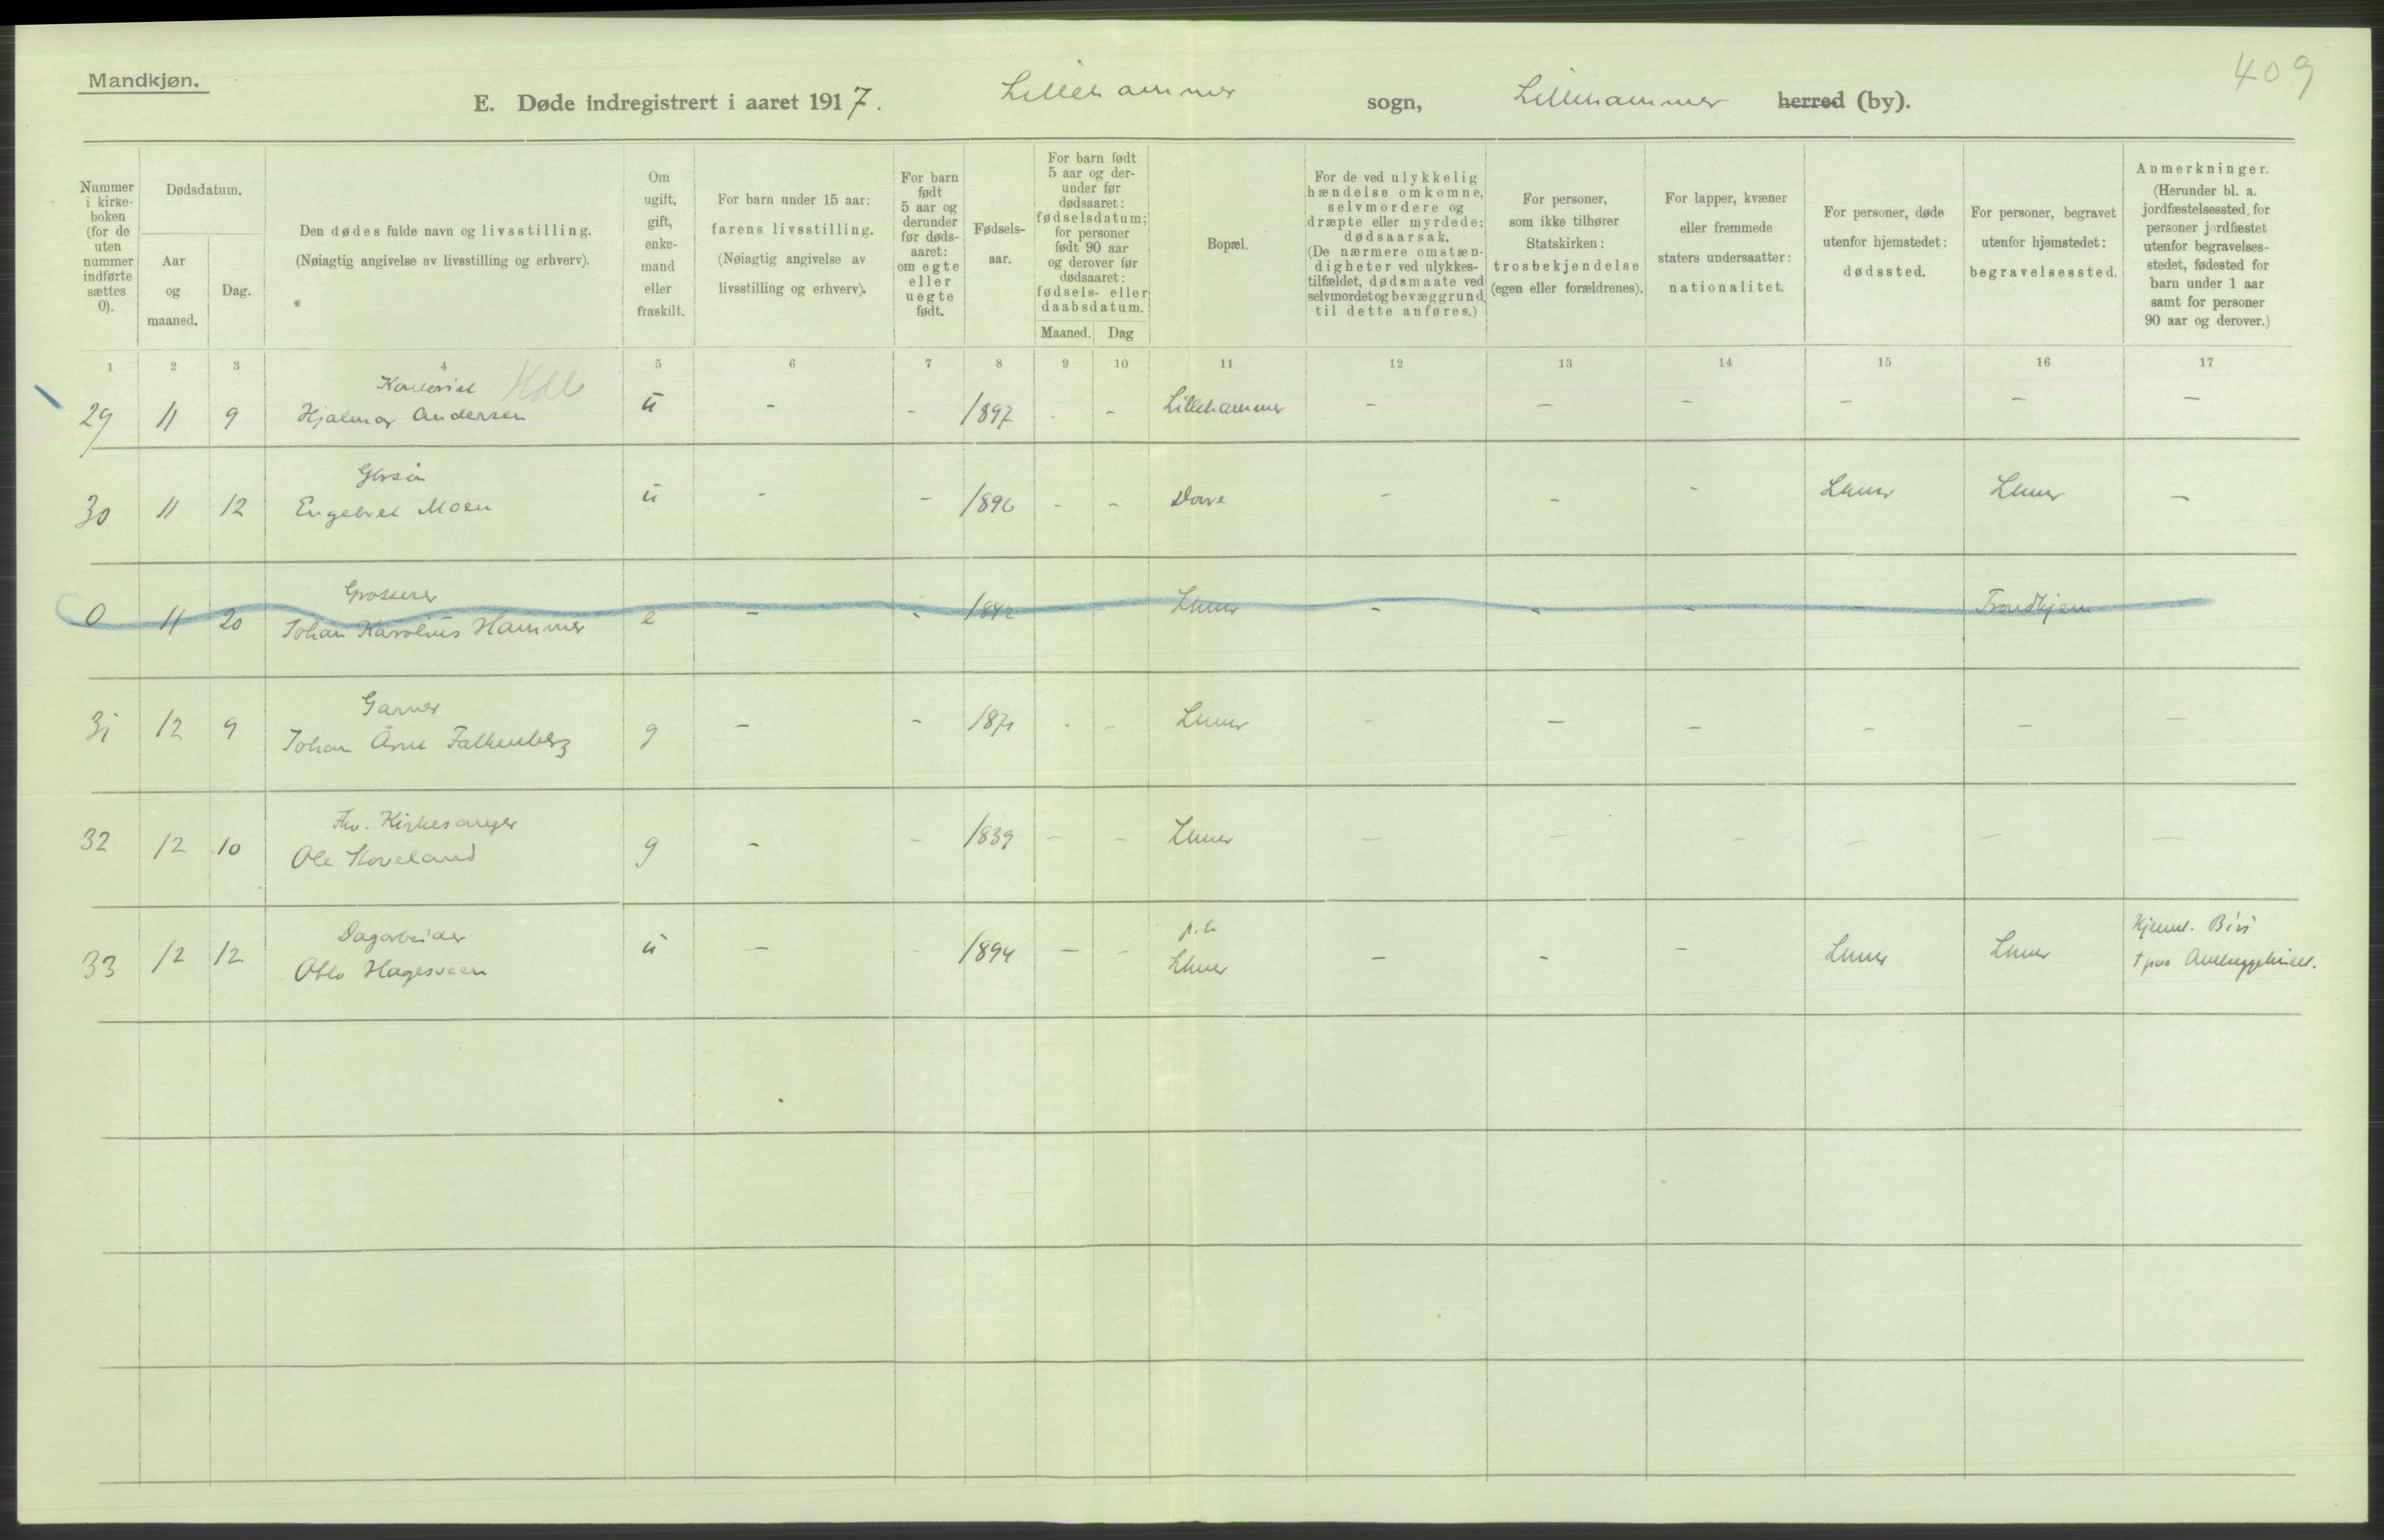 Mandkjøn.
409
E. Døde indregistrert i aaret 1917. Lillehammer sogn, Lillehammer herred (by).
Nummer i kirke- boken (for de uten nummer indførte sættes 0).
Dødsdatum.
Aar og maaned.
Dag.
Den dødes fulde navn og livsstilling.
(Nøiagtig angivelse av livsstilling og erhverv).
Om ugift, gift, enke- mand eller fraskilt.
For barn under 15 aar: farens livsstilling. (Nøiagtig angivelse av livsstilling og erhverv).
For barn født 5 aar og derunder før døds- aaret: om egte eller uegte født.
Fødsels- aar.
For barn født 5 aar og der- under før dødsaaret: fødselsdatum; for personer født 90 aar og derover før dødsaaret: fødsels- eller daabsdatum.
Maaned. Dag
Bopæl.
For de ved ulykkelig hændelse omkomne, selvmordere og dræpte eller myrdede: dødsaarsak. (De nærmere omstæn- digheter ved ulykkes- tilfældet, dødsmaate ved selvmordet og bevæggrund til dette anføres.)
For personer, som ikke tilhører Statskirken: trosbekjendelse (egen eller forældrenes).
For lapper, kvæner eller fremmede staters undersaatter: nationalitet.
For personer, døde utenfor hjemstedet: dødssted.
For personer, begravet utenfor hjemstedet: begravelsessted.
Anmerkninger. (Herunder bl. a. jordfæstelsessted for personer jordfæstet utenfor begravelses- stedet, fødested for barn under 1 aar samt for personer 90 aar og derover.)
1 2 3 4 5 6 7 8 9 10 11 12 13 14 15 16 17
Kontorist
29 11 9 Hjalmar Andersen u - - 1897 - - Lillehammer - - - - - -
30 11 12 Engebret Moen u - - 1896 - - Dovre - - - Lhmr Lhmr -
Grosserer
0 11 20 Johan Karolius Hammer e - - 1842 - - Lhmr - - - - Trondhjem
Garver
31 12 9 Johan Arne Falkenberg g - - 1871 - - Lhmr - - - - - -
Fhv. Kirkesanger
32 12 10 Ole Hoveland g - - 1839 - - Lhmr - - - - - -
Dagarbeider
33 12 12 Otto Hagesveen u - - 1894 - - p.t. Lhmr - - - Lhmr Lhmr Hjemst. Biri
† paa